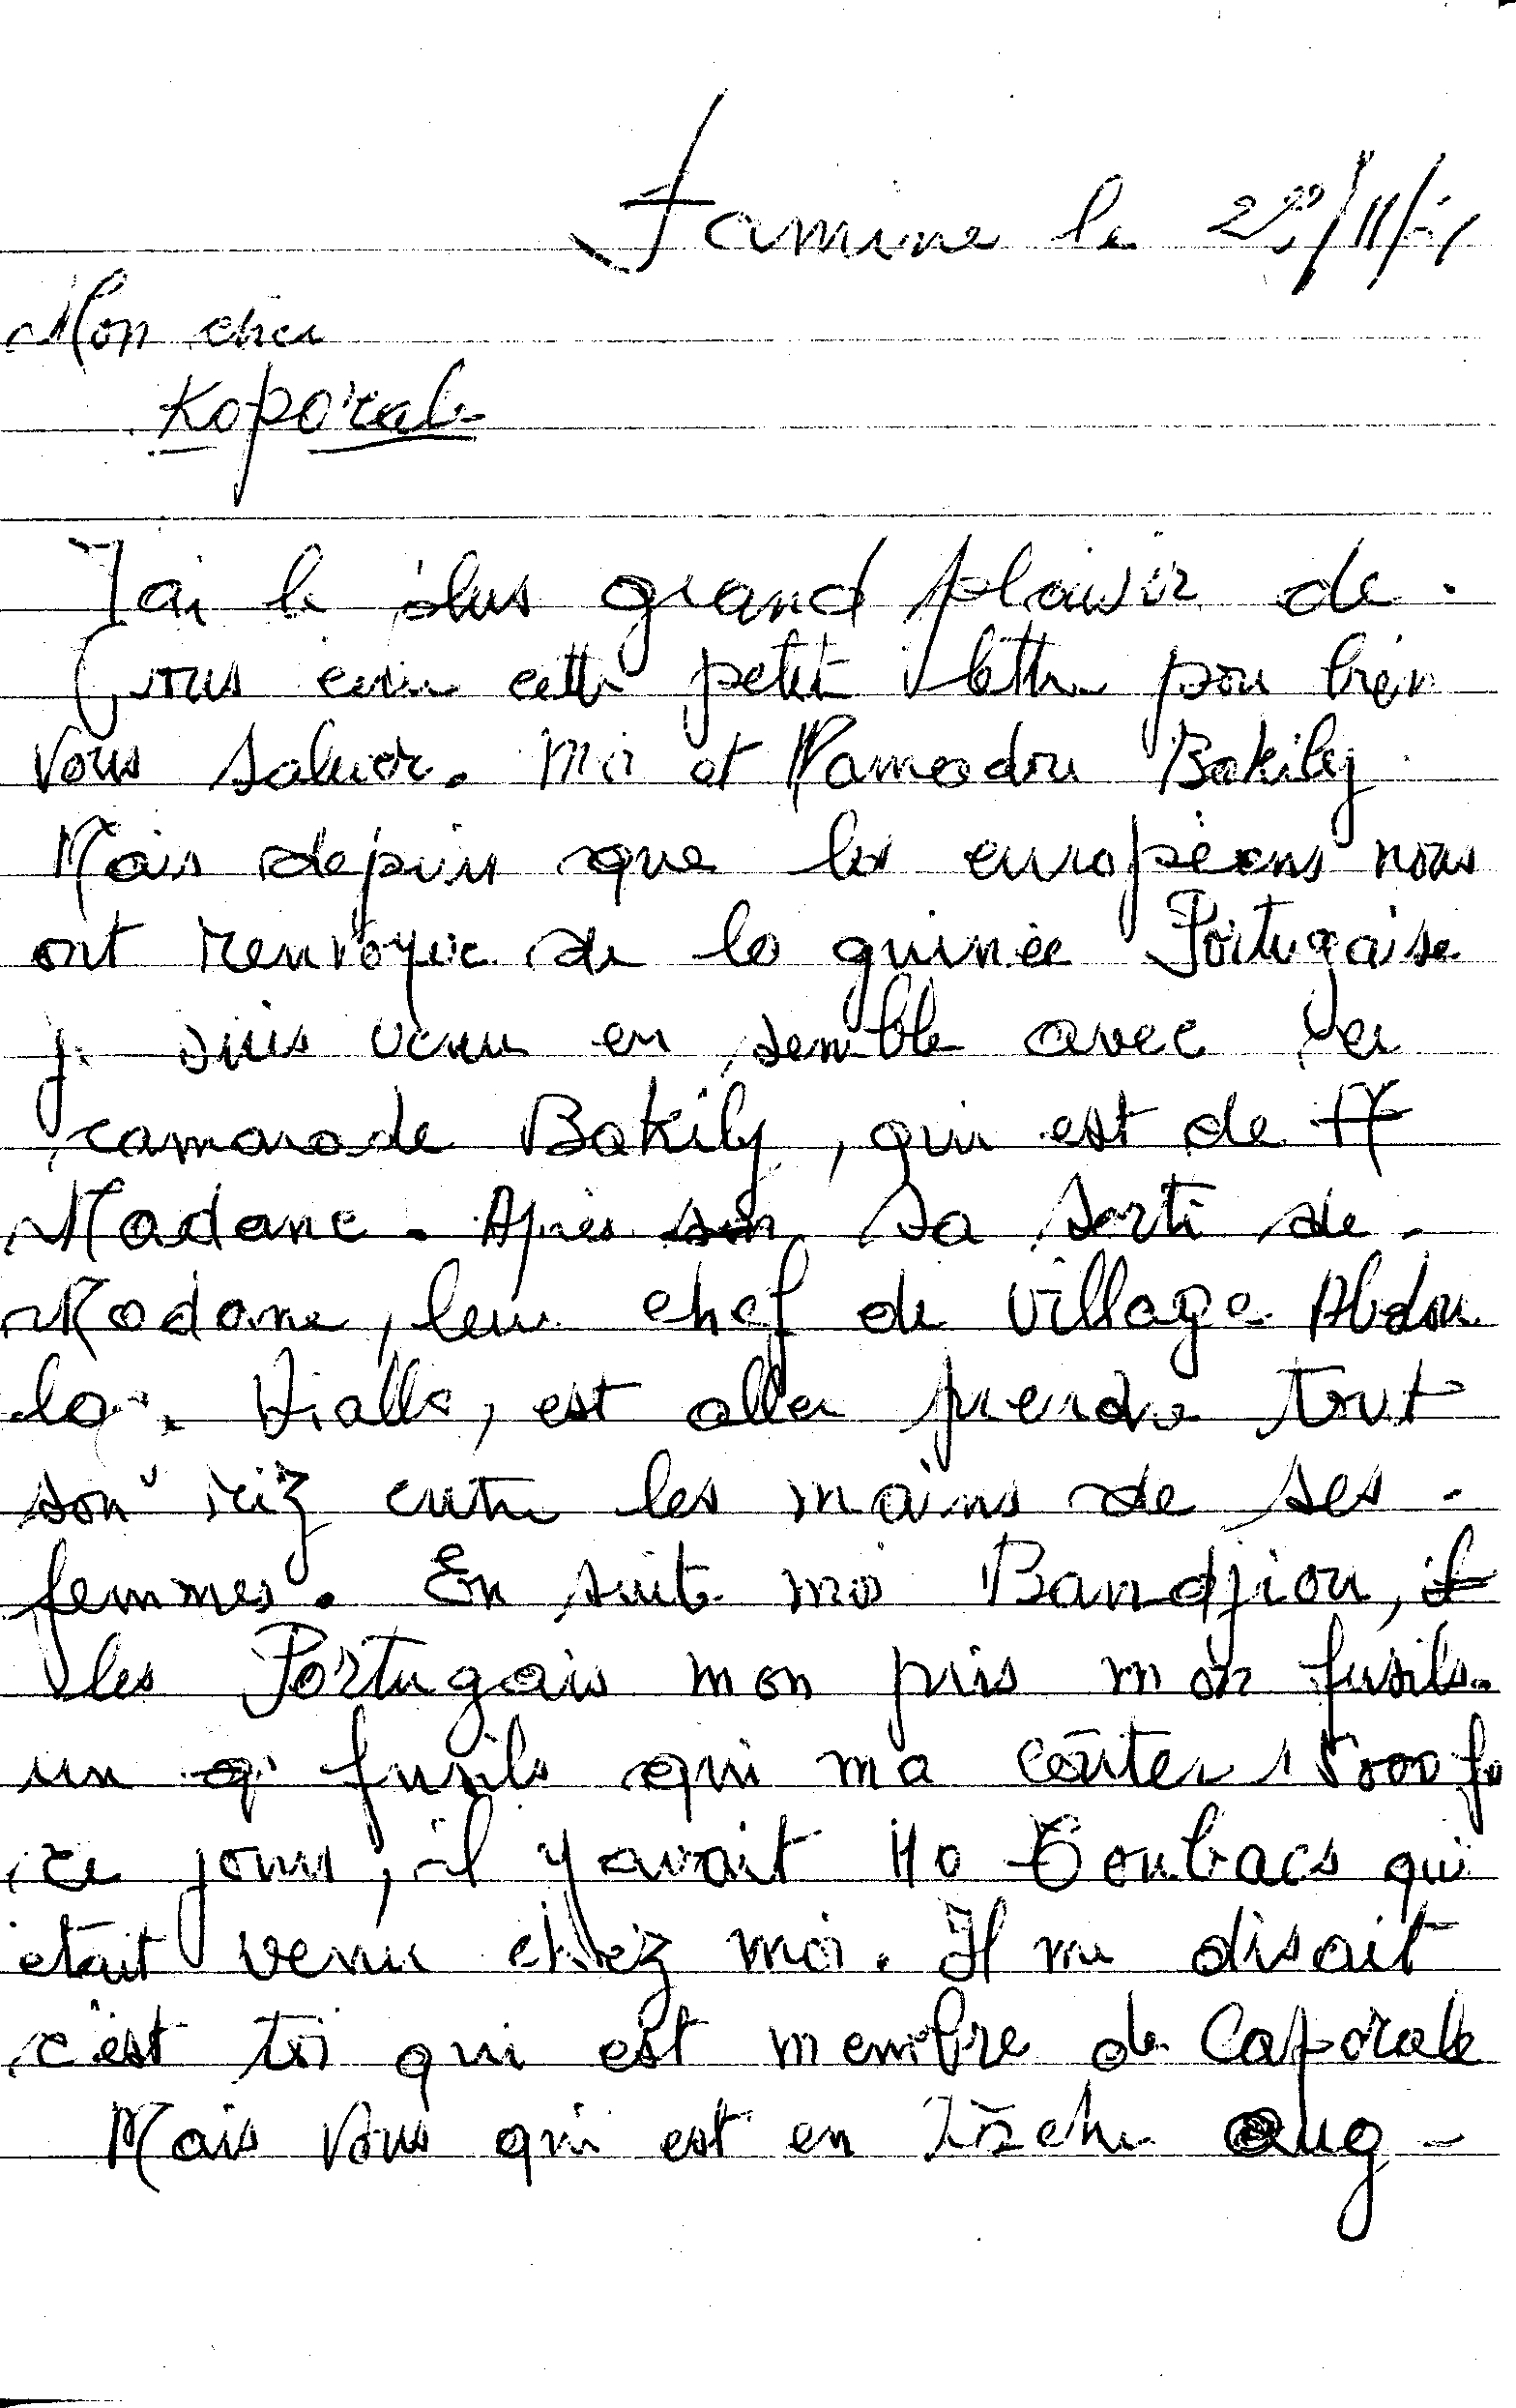 Famine le
Mon cher
Koporale
J'ai le plus grand plaisir de
vous écrire cette petite lettre pour bien
vous saluer. Moi et Mamadou Bakily
Mais depuis que les européens nous
ont renvoyer de la guinée Portugaise
je suis venu en semble avec le
camarade Bakily, qui est de
Madane. Après son sa sorti de
Madane, leur chef de village Abdou
la. Diallo, est aller prendre tout
son riz entre les mains de ses
femmes. En suite moi Bandjiou, il
les Portugais mon pris mon fusils
un fusils qui ma coûter 15000f
ce jour, il y avait 40 Toubacs qui
était venu chez moi. Il me disait
c'est toi qui est membre de Caporale
Mais vous qui est en aug-